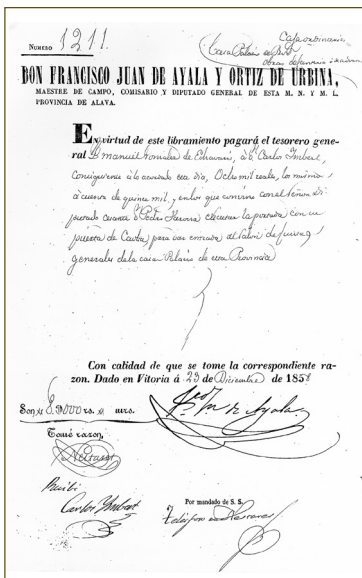 Caja ordinaria
Casa Palacio de Prov.
obras
NUMERO 1211.
DON FRANCISCO JUAN DE AYALA Y ORTIZ DE URBINA,
MAESTRE DE CAMPO, COMISARIO Y DIPUTADO GENERAL DE ESTA M. N. Y M. L.
PROVINCIA DE ALAVA.
En virtud de este libramiento pagará el tesorero gene-
ral D. Manuel Gonzalez de Echavarri, á D. Carlos Imbert,
consiguiente á lo acordado este dia, Ocho mil reales, los mismos
á cuenta de quince mil, en los que convino con el Señor Di-
putado D. Pedro egecutar la portada con su
puerta de para dar entrada al salon de juntas
generales de la casa Palacio de esta Provincia
Con calidad de que se tome la correspondiente ra-
zon. Dado en Vitoria á 23 de Diciembre de 1858
Son 8.000 rs. mrs.
Fco. Jn. de Ayala
Tomé razon,
Recibi
Carlos Imbert
Por mandado de S. S.